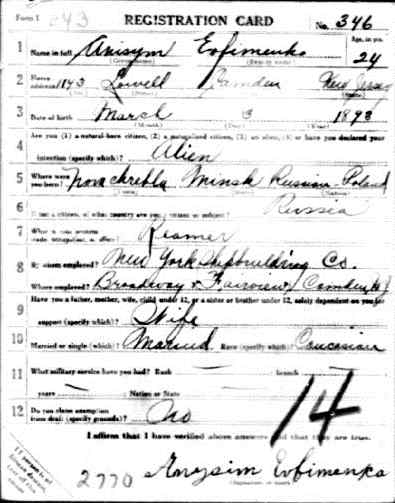 Form 1 REGISTRATION CARD No. 346
1 Name in full Anisym Evfimenko Age, in yrs. 24
2 Home address 1143 Lowell Camden New Jersey
3 Date of birth March 3 1893
Are you (1) a natural-born citizen, (2) a naturalized citizen, (3) an alien, (4) or have you declared your
4 intention (specify which)? Alien
5 Where were you born? Minsk Russian-Poland
6 If not a citizen, of what country are you a citizen or subject? Russia
7 What is your present trade, occupation, or office? Reamer
8 By whom employed? New York Shipbuilding Co.
Where employed? Broadway & Fairview Camden N J
Have you a father, mother, wife, child under 12, or a sister or brother under 12, solely dependent on you for
9 support (specify which)? Wife
10 Married or single (which)? Married Race (specify which)? Caucasian
11 What military service have you had? Rank branch
years Nation or State
12 Do you claim exemption from draft (specify grounds)? No
I affirm that I have verified above answers and that they are true.
14
2770 Anysim Evfimenko